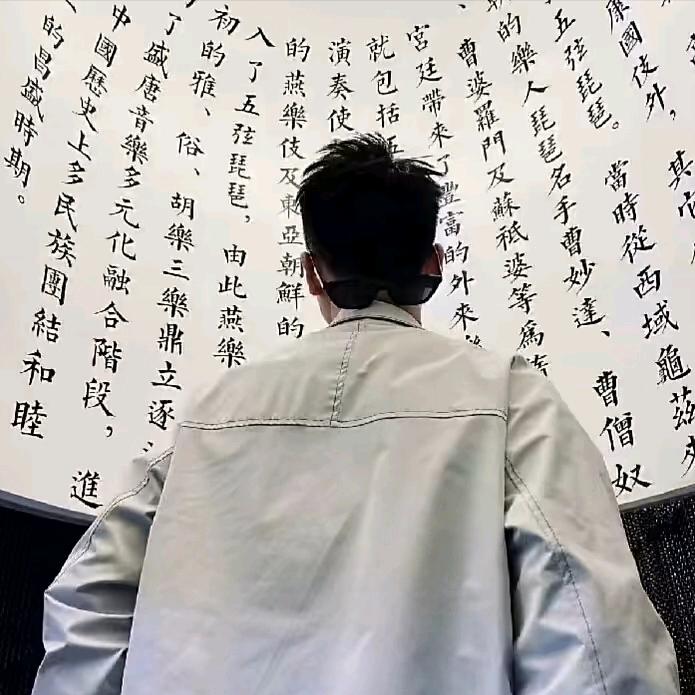 康國伎外，其
五弦琵琶。當時從西域龜茲來
的樂人琵琶名手曹妙達、曹僧奴
、曹婆羅門及蘇祗婆等為
宮廷帶來了豐富的外來樂
就包括五
演奏使
的燕樂伎及東亞朝鮮的
入了五弦琵琶，由此燕樂
初的雅、俗、胡樂三樂鼎立逐
了盛唐音樂多元化融合階段，進
中國歷史上多民族團結和睦
的昌盛時期。